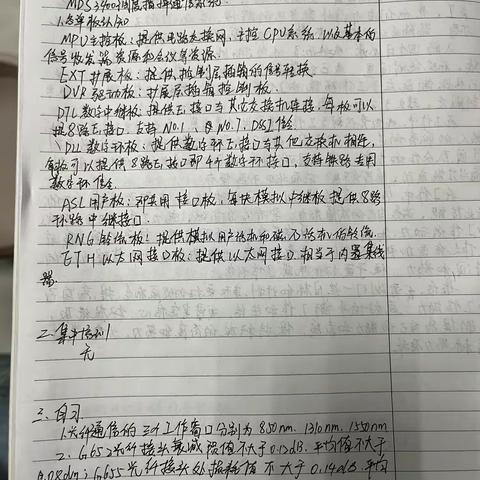 MDS3400调度指挥通信系统.
1.各单板认知
MPU主控板:提供电路交换网,主控CPU系统,以及基本的
信号收发器资源和会议等资源.
EXT扩展板:提供控制层插销的信号转换.
DVR驱动板:扩展层插销控制板.
DTL数字中继板:提供E1接口与其它交换机连接,每板可以
提8路E1接口,支持No.1、No.7、DSS1信令
DLL数字环板:提供数字环E1接口与其他交换机相连,
每板可以提供8路E1接口即4个数字环接口,支持铁路专用
数字环信令.
ASL用户板:即实用接口板,每块模拟中继板提供8路
环路中继接口.
RNG铃流板:提供模拟用户话机和磁石话机的铃流.
ETH以太网接口板:提供以太网接口相当于内置集线
器.
二.集中培训
无
三.自习
1.光纤通信的三个工作窗口分别为850nm、1310nm、1550nm
2.G652光纤接头衰减限值不大于0.12dB,平均值不大于
0.08dm;G655光纤接头处损耗值不大于0.14dB,平均